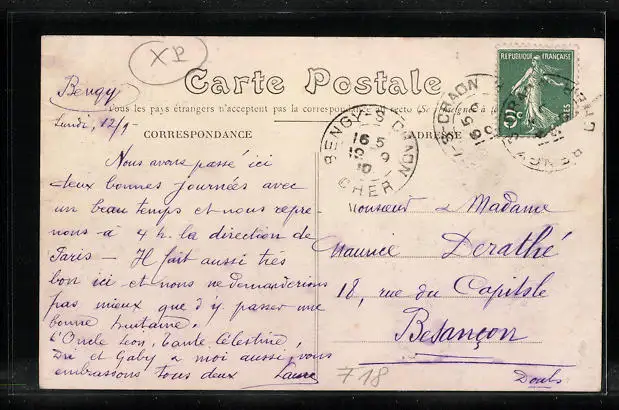 XP
Carte Postale
Bengy
Tous les pays étrangers n'acceptent pas la correspondance au recto (Se
Lundi, 12/9 -
CORRESPONDANCE
ADRESSE
Nous avons passé ici
deux bonnes journées avec
un beau temps et nous repre-
nons à 4 h. la direction de
Paris — Il fait aussi très
bon ici et nous ne demanderions
pas mieux que d'y passer une
bonne huitaine.
L'Oncle Léon, Tante Célestine,
Dré et Gaby & moi aussi, vous
embrassons tous deux Laure
REPUBLIQUE FRANÇAISE
5c
BENGY-S-CRAON
16 5
12 9
10
CHER
Monsieur & Madame
Maurice Derathé
18, rue du Capitole
Besançon
Doubs
718